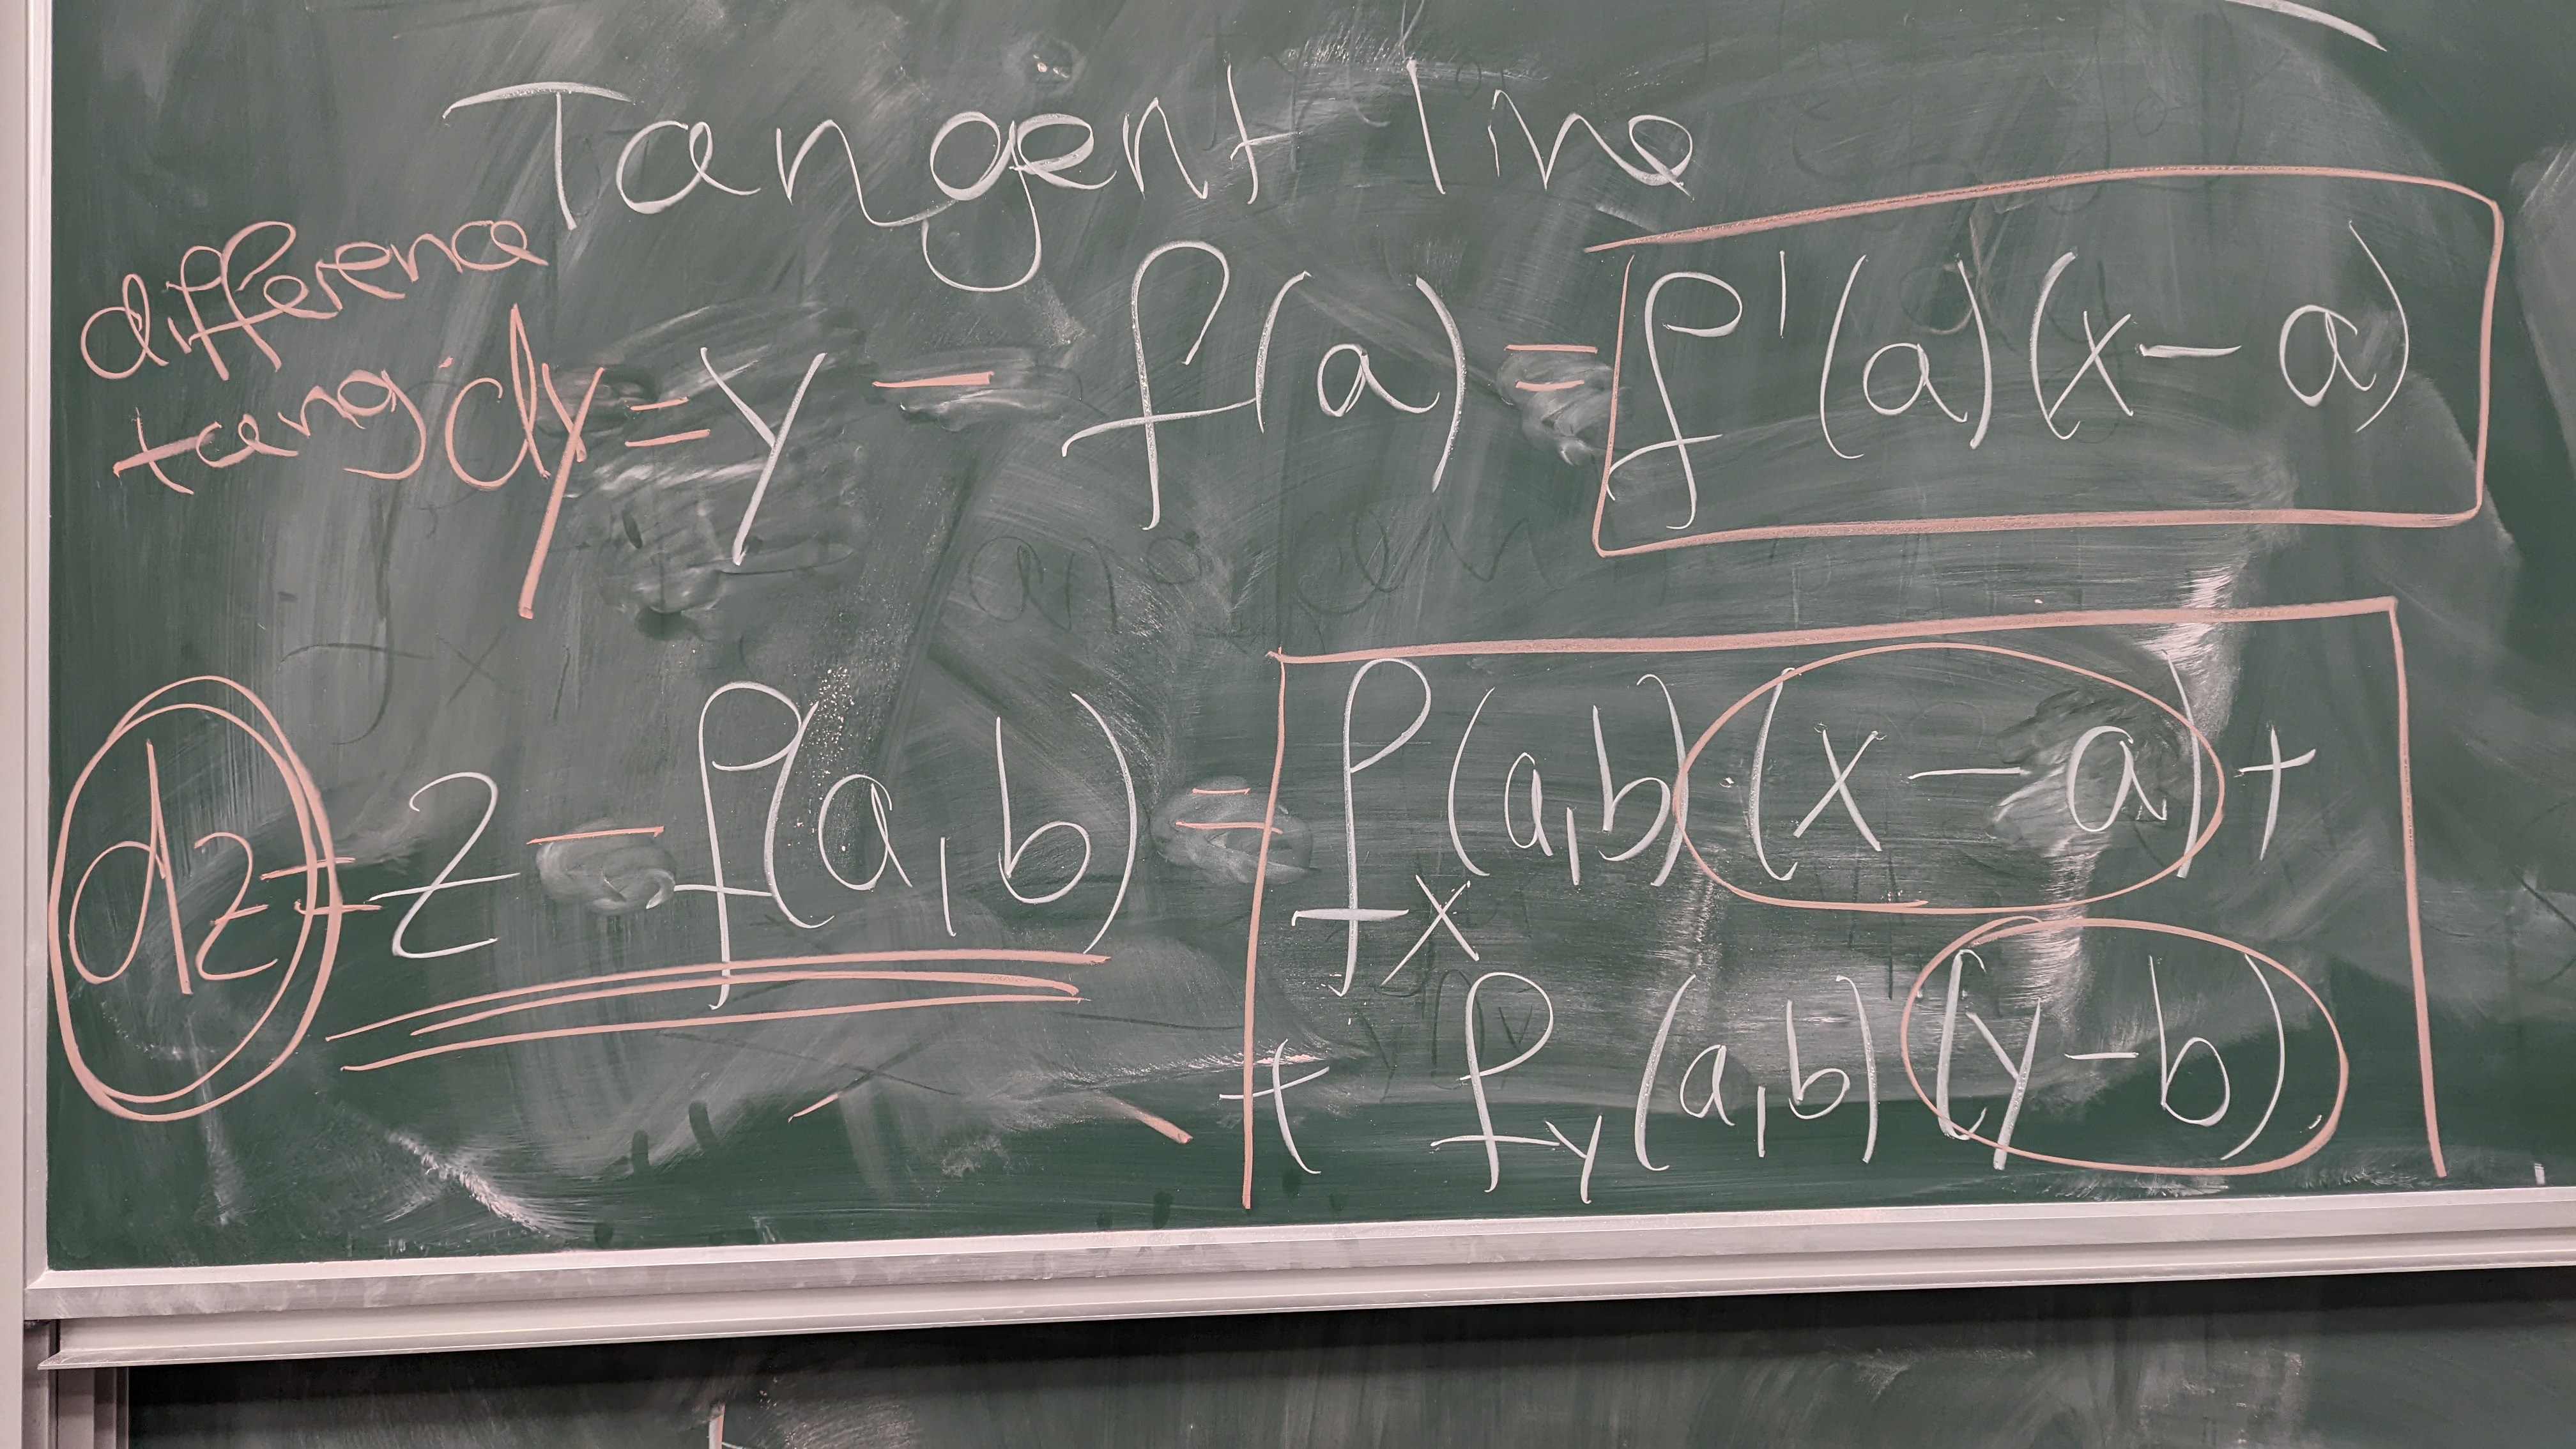 Tangent line
difference
tang. dy = y - f(a) = f'(a)(x - a)
dz = z - f(a,b) = f_x(a,b)(x - a) +
+ f_y(a,b)(y - b)